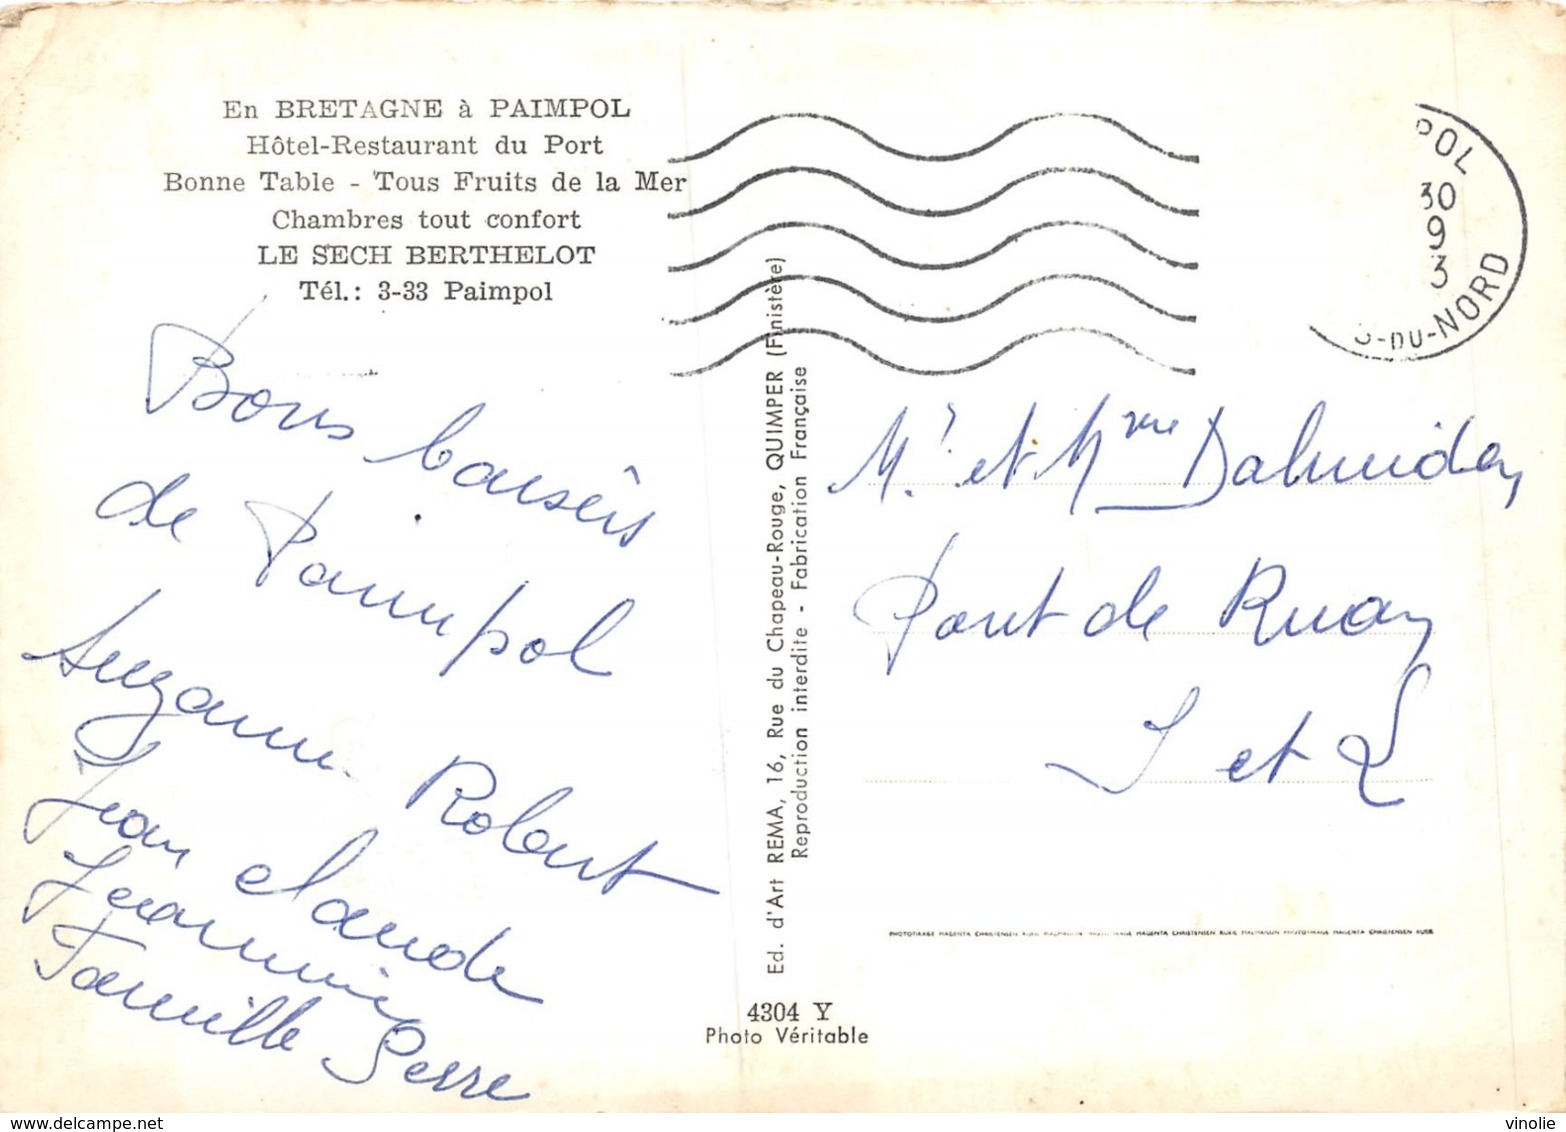 En BRETAGNE à PAIMPOL
Hôtel-Restaurant du Port
Bonne Table - Tous Fruits de la Mer
Chambres tout confort
LE SECH BERTHELOT
Tél.: 3-33 Paimpol
POL
30
9
3
S-DU-NORD
Bons baisers
de Paimpol
Suzanne Robert
Jean Claude
Jeannine
Famille Serre
Ed. d'Art REMA, 16, Rue du Chapeau-Rouge, QUIMPER (Finistère)
Reproduction interdite - Fabrication Française
Mr et Mme
Pont de Ruan
I et L
PHOTOTIRAGE MAGENTA CHRISTENSEN RUEIL MALMAISON PHOTOTIRAGE MAGENTA CHRISTENSEN RUEIL MALMAISON PHOTOTIRAGE MAGENTA CHRISTENSEN RUEIL
4304 Y
Photo Véritable
vinolie